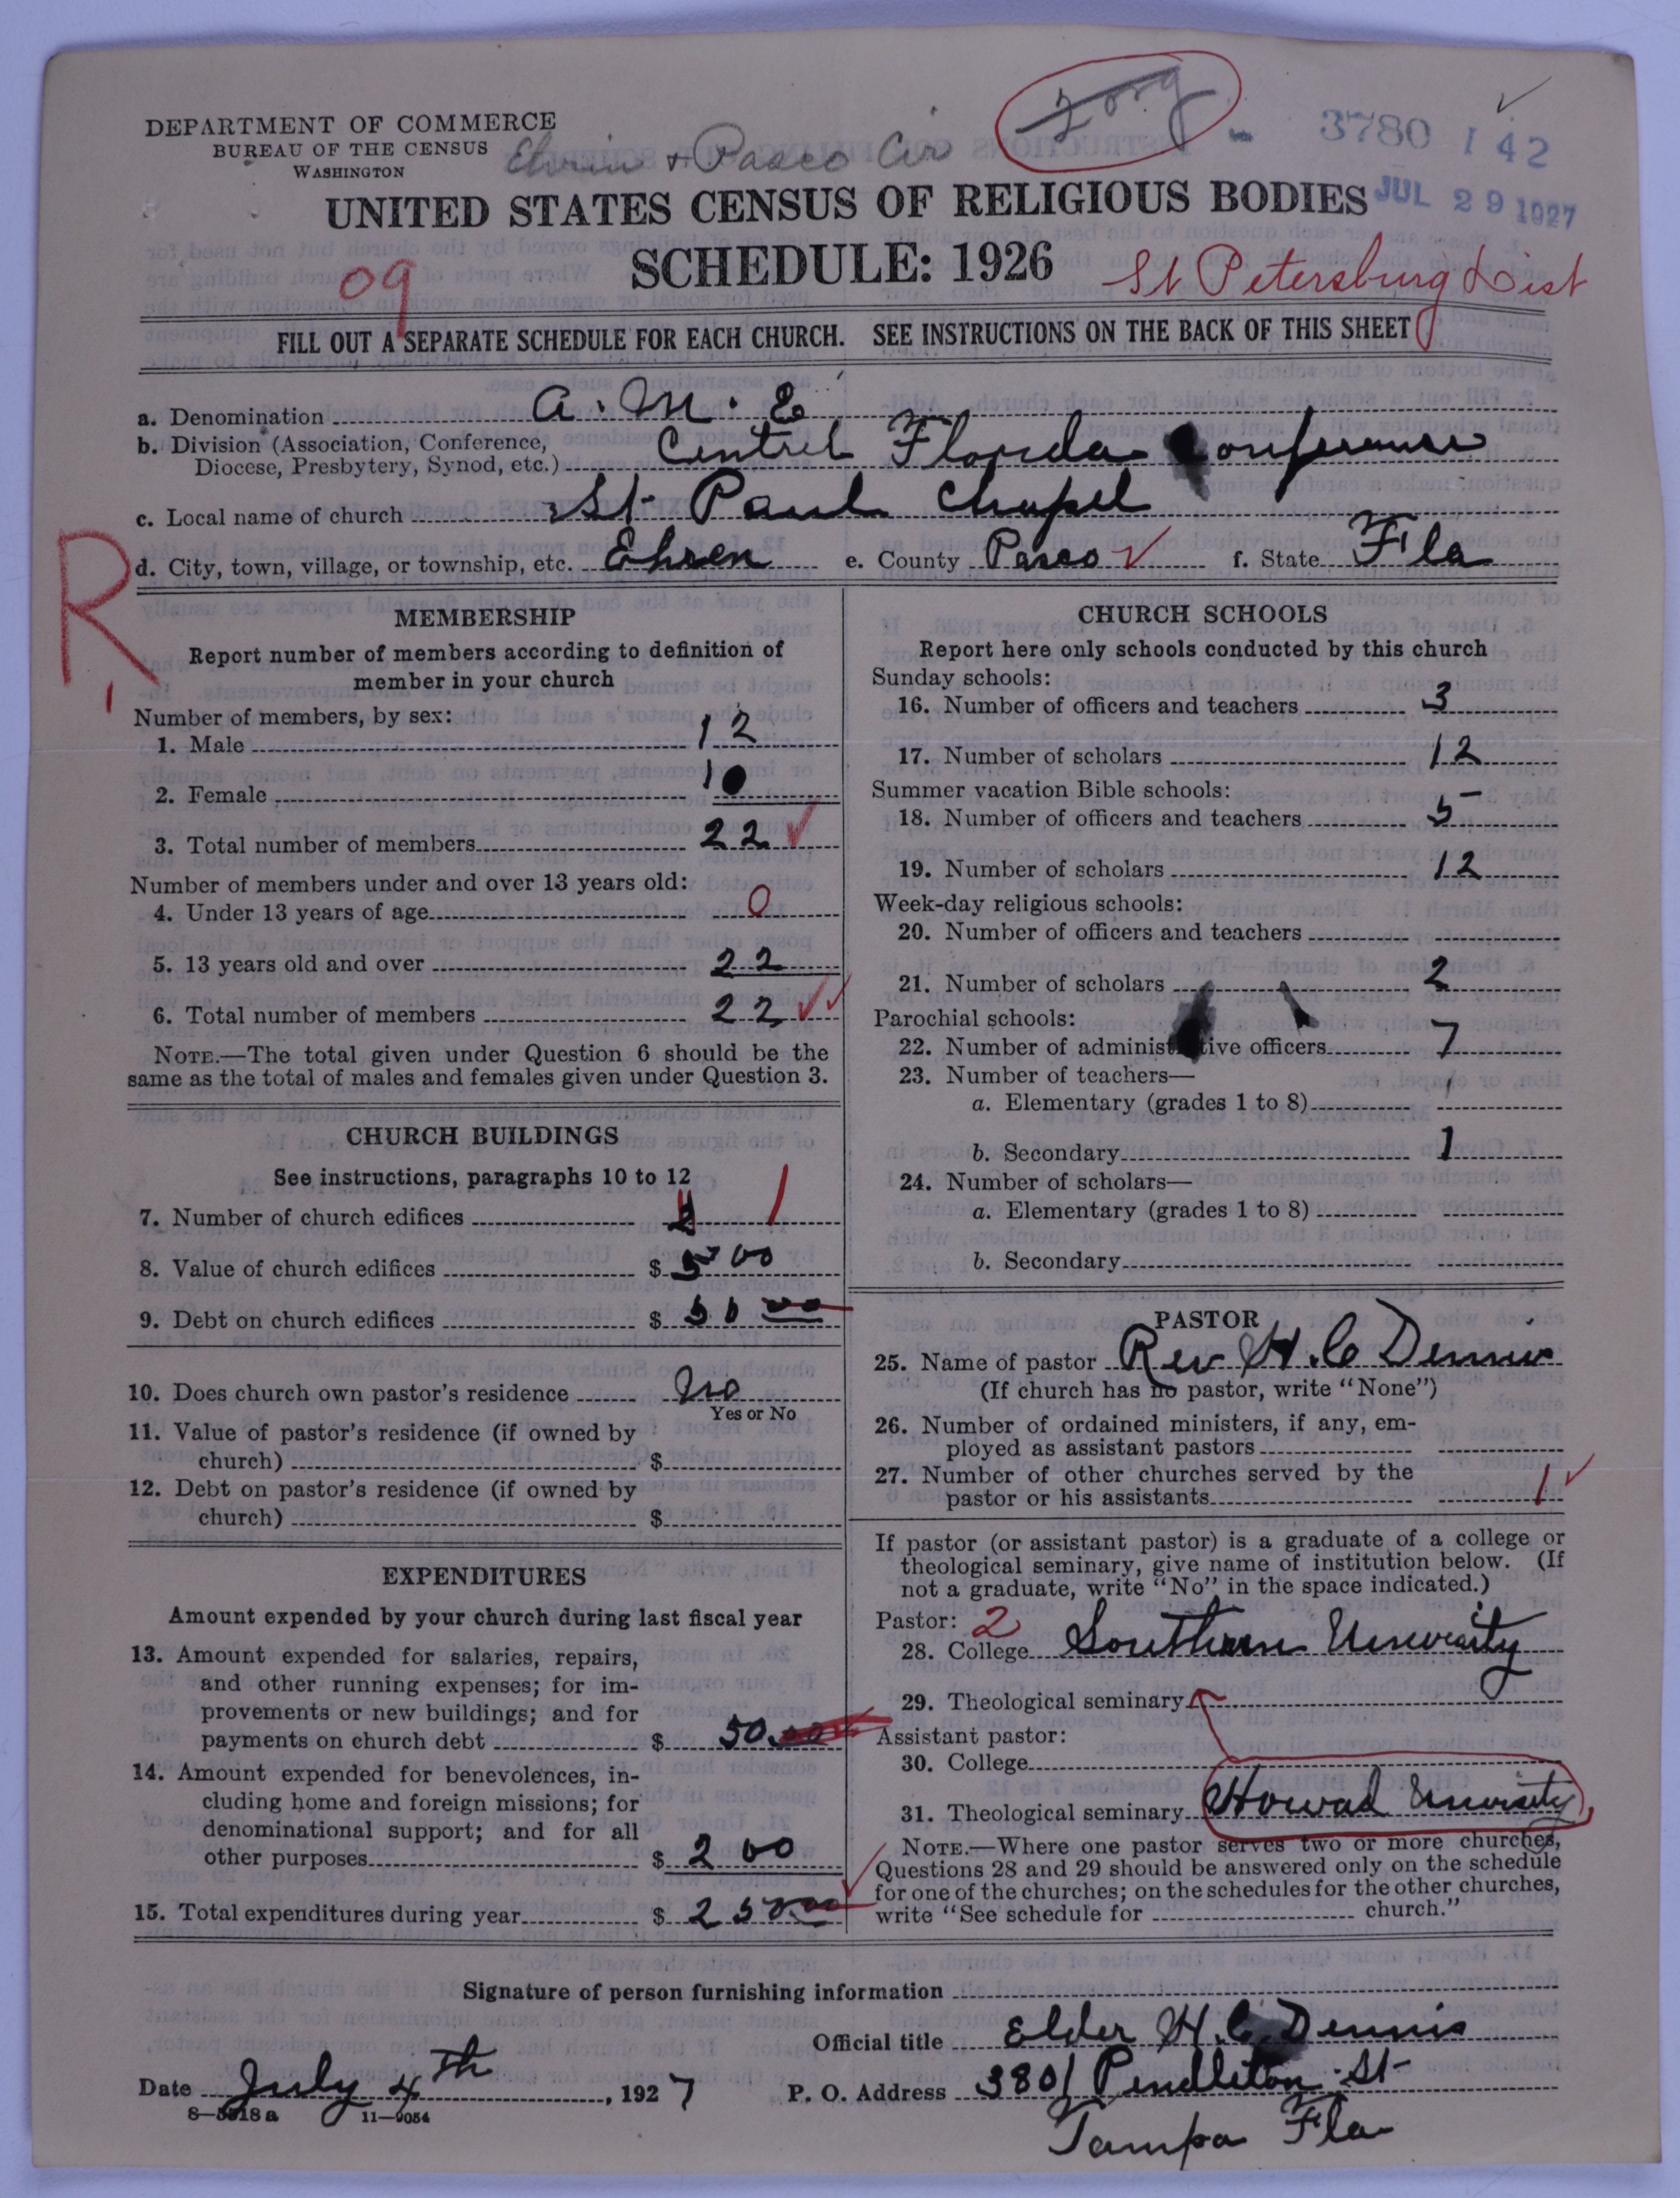 DEPARTMENT OF COMMERCE
BUREAU OF THE CENSUS
WASHINGTON
+ Pasco Cir
2 org
3780 1 42
JUL 29 1927
UNITED STATES CENSUS OF RELIGIOUS BODIES
SCHEDULE: 1926
09
St Petersburg Dist
FILL OUT A SEPARATE SCHEDULE FOR EACH CHURCH. SEE INSTRUCTIONS ON THE BACK OF THIS SHEET
a. Denomination A. M. E
b. Division (Association, Conference,
Diocese, Presbytery, Synod, etc.) Central Florida Conference
c. Local name of church St Paul Chapel
d. City, town, village, or township, etc. Ehren e. County Pasco f. State Fla
R
MEMBERSHIP
Report number of members according to definition of
member in your church
Number of members, by sex:
1. Male 12
2. Female 10
3. Total number of members 22
Number of members under and over 13 years old:
4. Under 13 years of age 0
5. 13 years old and over 22
6. Total number of members 22
NOTE.—The total given under Question 6 should be the
same as the total of males and females given under Question 3.
CHURCH BUILDINGS
See instructions, paragraphs 10 to 12
7. Number of church edifices 1
8. Value of church edifices $ 500
9. Debt on church edifices $ 50 00
10. Does church own pastor's residence No
Yes or No
11. Value of pastor's residence (if owned by
church) $
12. Debt on pastor's residence (if owned by
church) $
EXPENDITURES
Amount expended by your church during last fiscal year
13. Amount expended for salaries, repairs,
and other running expenses; for im-
provements or new buildings; and for
payments on church debt $ 50.00
14. Amount expended for benevolences, in-
cluding home and foreign missions; for
denominational support; and for all
other purposes $ 200
15. Total expenditures during year $ 250 00
CHURCH SCHOOLS
Report here only schools conducted by this church
Sunday schools:
16. Number of officers and teachers 3
17. Number of scholars 12
Summer vacation Bible schools:
18. Number of officers and teachers 5
19. Number of scholars 12
Week-day religious schools:
20. Number of officers and teachers
21. Number of scholars 2
Parochial schools:
22. Number of administrative officers 7
23. Number of teachers—
a. Elementary (grades 1 to 8)
b. Secondary 1
24. Number of scholars—
a. Elementary (grades 1 to 8)
b. Secondary
PASTOR
25. Name of pastor Rev H. C Dennis
(If church has no pastor, write "None")
26. Number of ordained ministers, if any, em-
ployed as assistant pastors
27. Number of other churches served by the
pastor or his assistants 1
If pastor (or assistant pastor) is a graduate of a college or
theological seminary, give name of institution below. (If
not a graduate, write "No" in the space indicated.)
Pastor: 2
28. College Southern University
29. Theological seminary
Assistant pastor:
30. College
31. Theological seminary Howard University
NOTE.—Where one pastor serves two or more churches,
Questions 28 and 29 should be answered only on the schedule
for one of the churches; on the schedules for the other churches,
write "See schedule for church."
Signature of person furnishing information
Official title Elder H. C. Dennis
Date July 4th, 1927 P. O. Address 3801 Pendleton St
Tampa Fla
8—5518a 11—9054